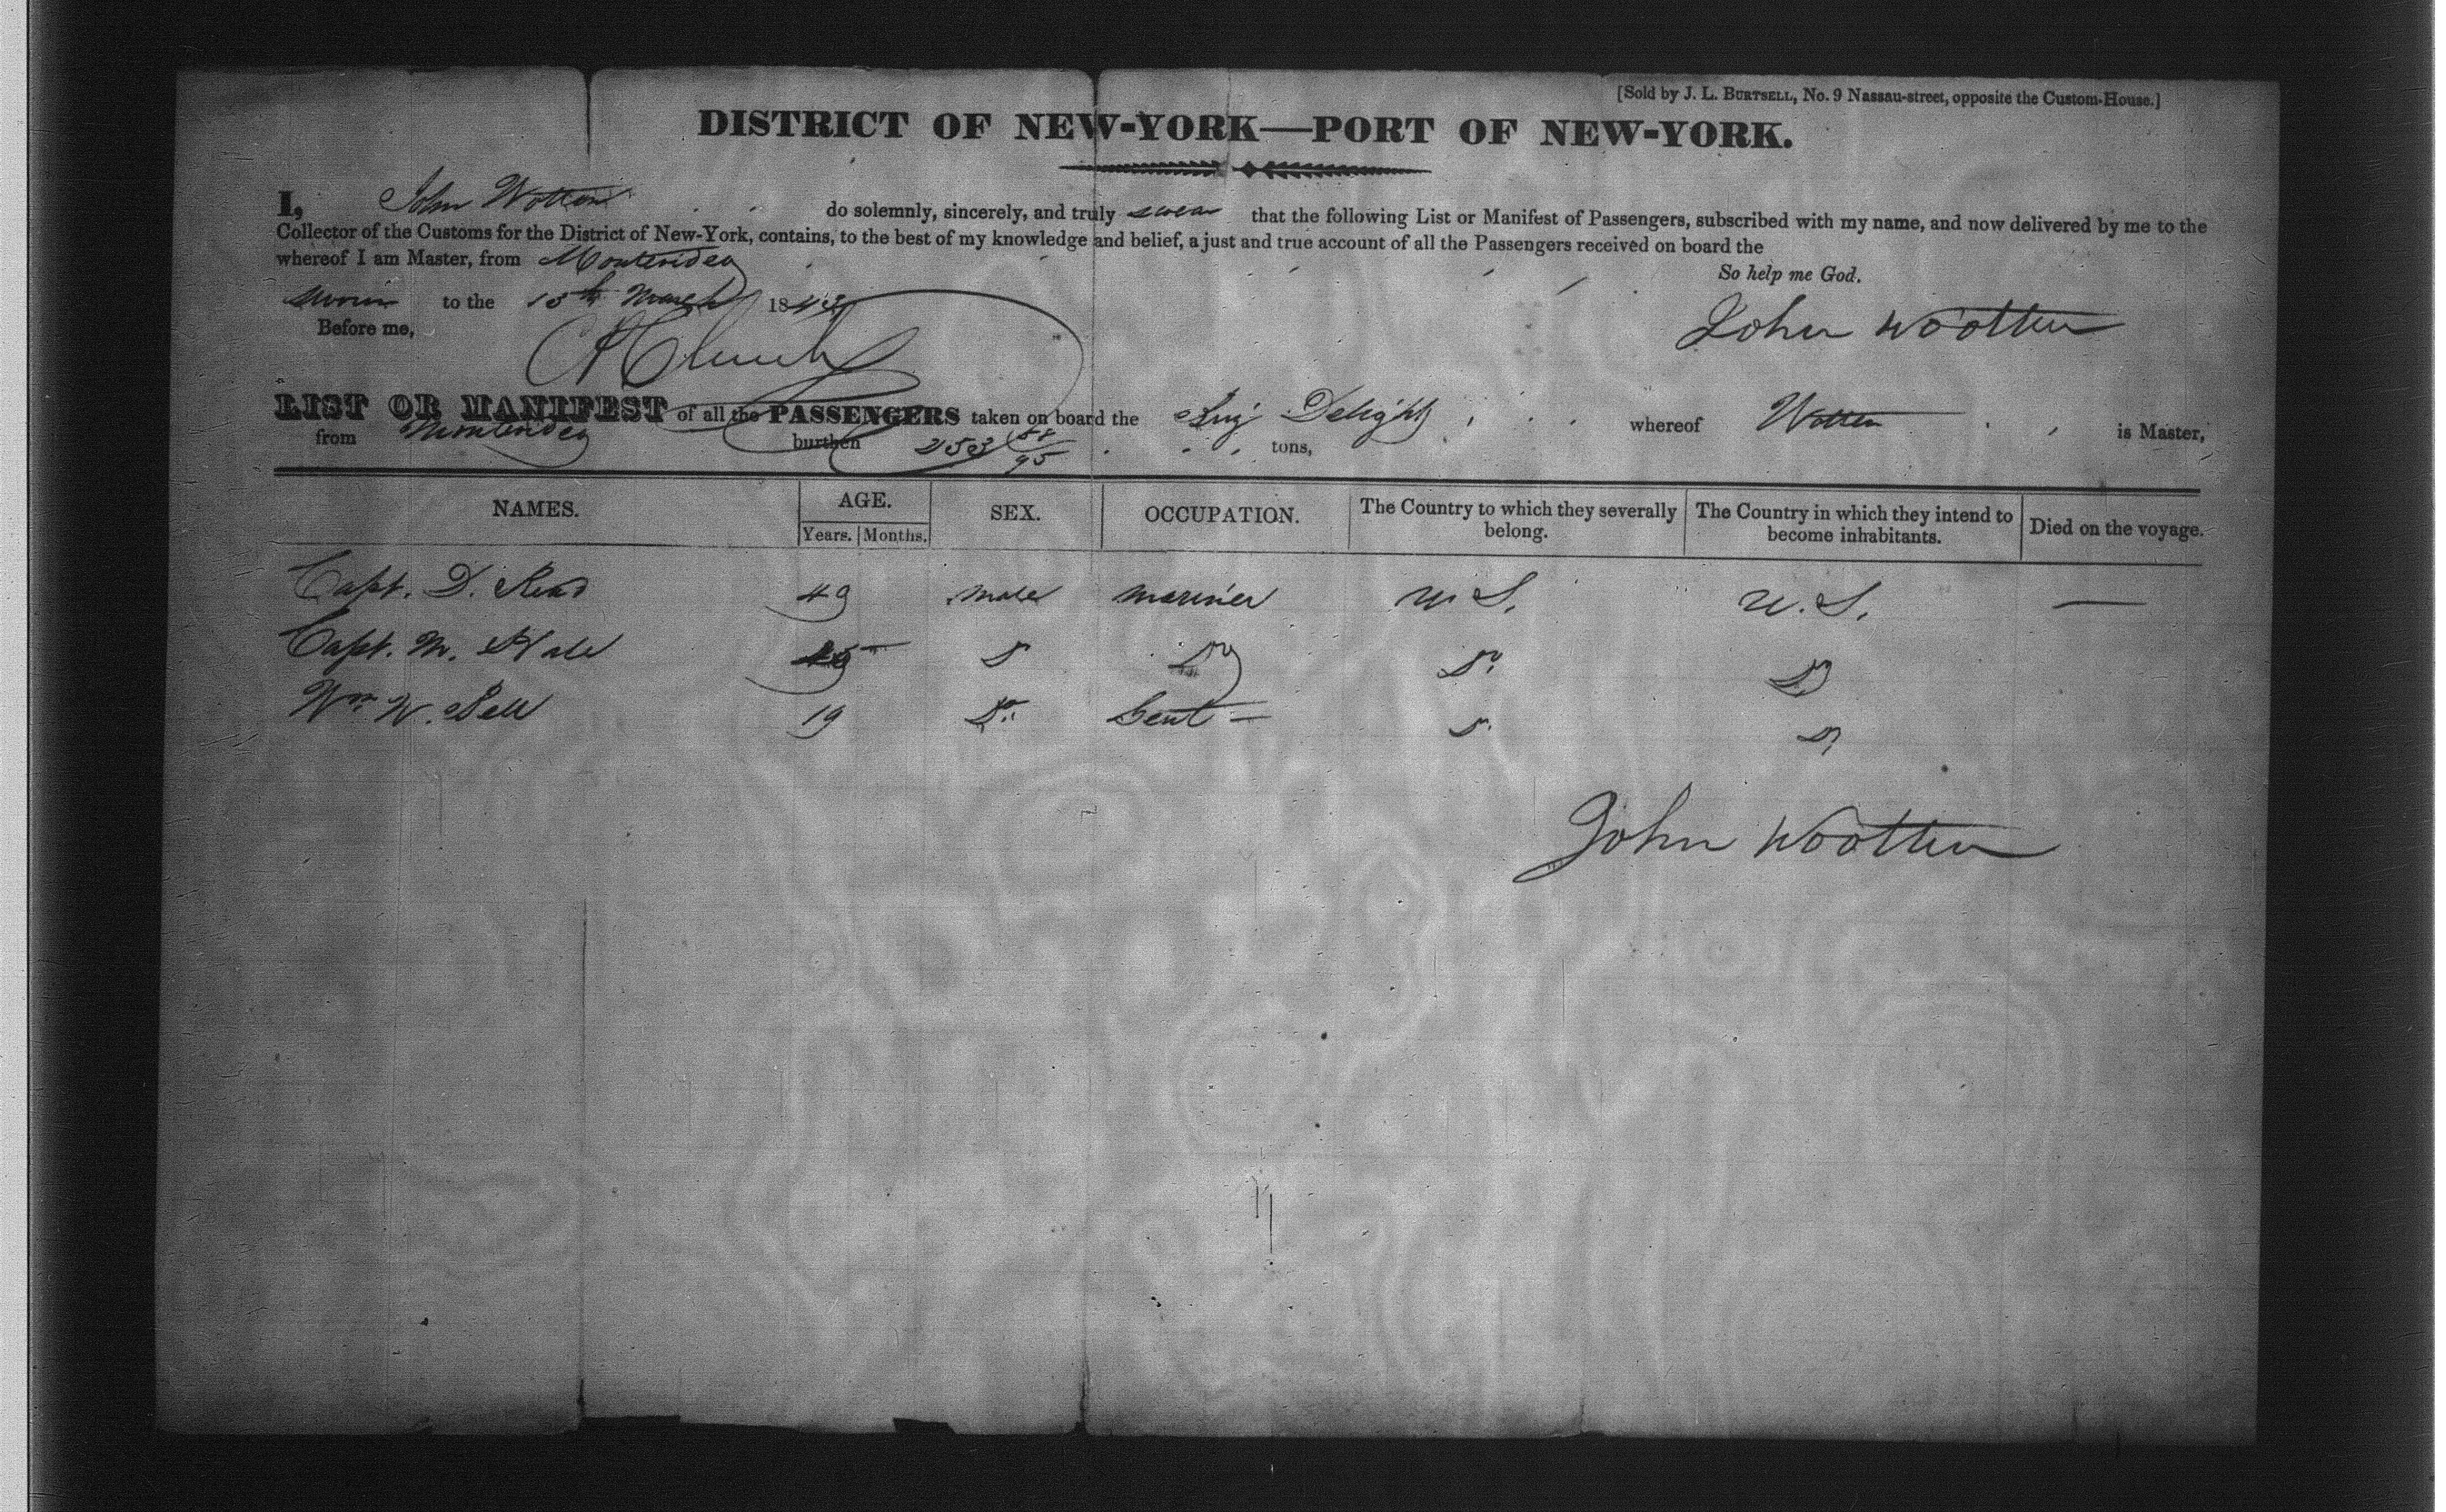 [Sold by J. L. BURTSELL, No. 9 Nassau-street, opposite the Custom-House.]
DISTRICT OF NEW-YORK—PORT OF NEW-YORK.
I, John Wotten do solemnly, sincerely, and truly swear that the following List or Manifest of Passengers, subscribed with my name, and now delivered by me to the
Collector of the Customs for the District of New-York, contains, to the best of my knowledge and belief, a just and true account of all the Passengers received on board the
whereof I am Master, from Montevideo
So help me God.
sworn to the 15th March 1843
John Wootten
Before me,
LIST OR MANIFEST of all the PASSENGERS taken on board the Brig Delight whereof Wotten is Master,
from Montevideo burthen 253 58/95 tons,
NAMES. AGE. Years. Months. SEX. OCCUPATION. The Country to which they severally belong. The Country in which they intend to become inhabitants. Died on the voyage.
Capt. D. Read 49 male mariner U S. U. S. —
Capt. M. Hale 45 Do Do Do Do
Wm. W. Bell 19 Do. Gent Do Do
John Wootten